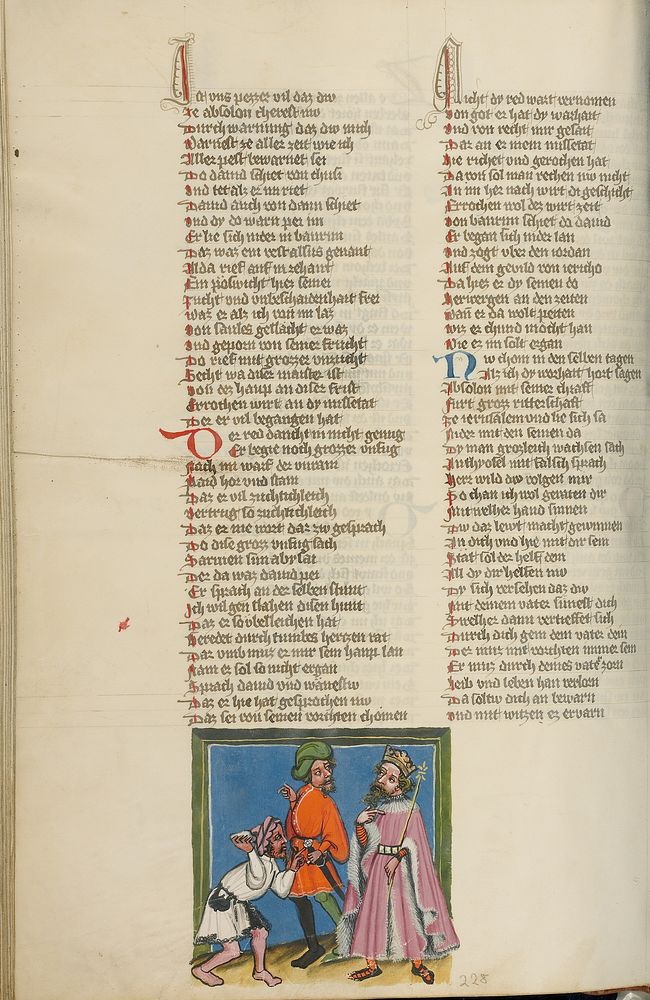 Ist vns pezzer vil daz diw
Ze absolon cherest nw
Durch warnung daz dw mich
Warnest ze aller zeit wie ich
Aller pest bewarnet sei
Do dauid schiet von chusi
Vnd tet alz er im riet
Dauid auch von dann schiet
Vnd dy do warn per im
Er lie sich nider in baurim
Daz waz ein vest alsus genant
Alda rief auf in zehant
Ein poswicht hiez semei
Zucht vnd vnbeschaidenhait frei
waz er alz ich von im laz
Von saules geslacht er waz
Vnd geporn von seiner frucht
Do rief mit grozzer vnzucht
Secht wa diser maister ist
Von dez haup an diser frist
Errochen wirt an dy missetat
Der er vil begangen hat
Der red daucht in nicht genug
Er begie noch grozzer vnfug
Nach im warf der vnrain
Paid hor vnd stain
Daz er vil zuchtichleich
Vertrug so zuchtichleich
Daz er nie wort dar zw gesprach
Do dise groz vnfug sach
Sarmen sun abysai
Der da waz dauid pei
Er sprach an der selben stunt
Ich wil gen slahen disen hunt
Daz er so vbelleichen hat
Geredet durch tumbes hertzen rat
Dar vmb muz er mir sein haup lan
Nain er sol so nicht ergan
Sprach dauid vnd wanestw
Daz er hie hat gesprochen nw
Daz sei von seinen vorchten chomen
Nicht dy red wart vernomen
Von got er hat dy warhait
Vnd von recht mir gesait
Dar an er mein missetat
Hie richet vnd gerochen hat
Da von sol man rechen nw nicht
An im her nach wirt di geschicht
Errochen wol dez wirt zeit
Von baurim schiet do dauid
Er began sich nider lan
Vnd zogt vber den iordan
Auf dem gevild von iericho
Da hiez er dy seinen do
Herwergen an den zeiten
Wan er da wolt peiten
Wiz er chund mocht han
Wie ez im solt ergan
Nw chom in den selben tagen
Alz ich dy warhait hort sagen
Absolon mit seiner chraft
Furt groz ritterschaft
Ze ierusalem vnd lie sich sa
Nider mit den seinen da
Dy man grozleich wachsen sach
Achytofel mit falsch sprach
Herr wild dw volgen mir
So chan ich wol geraten dir
Mit welher hand sinnen
Dw daz lewt macht gewinnen
An dich vnd hie mit dir sein
Stat sol der helf dein
All dy dir helfen nw
Dy sich versehen daz dw
Mit deinem vater sunest dich
Swelher dann vertieffet sich
Durch dich gern dem vater dein
Der muz mit vorchten immer sein
Er muz durch deines vater zorn
Leib vnd leben han verlorn
Da soltw dich an bewarn
Vnd mit witzen ez ervarn
228